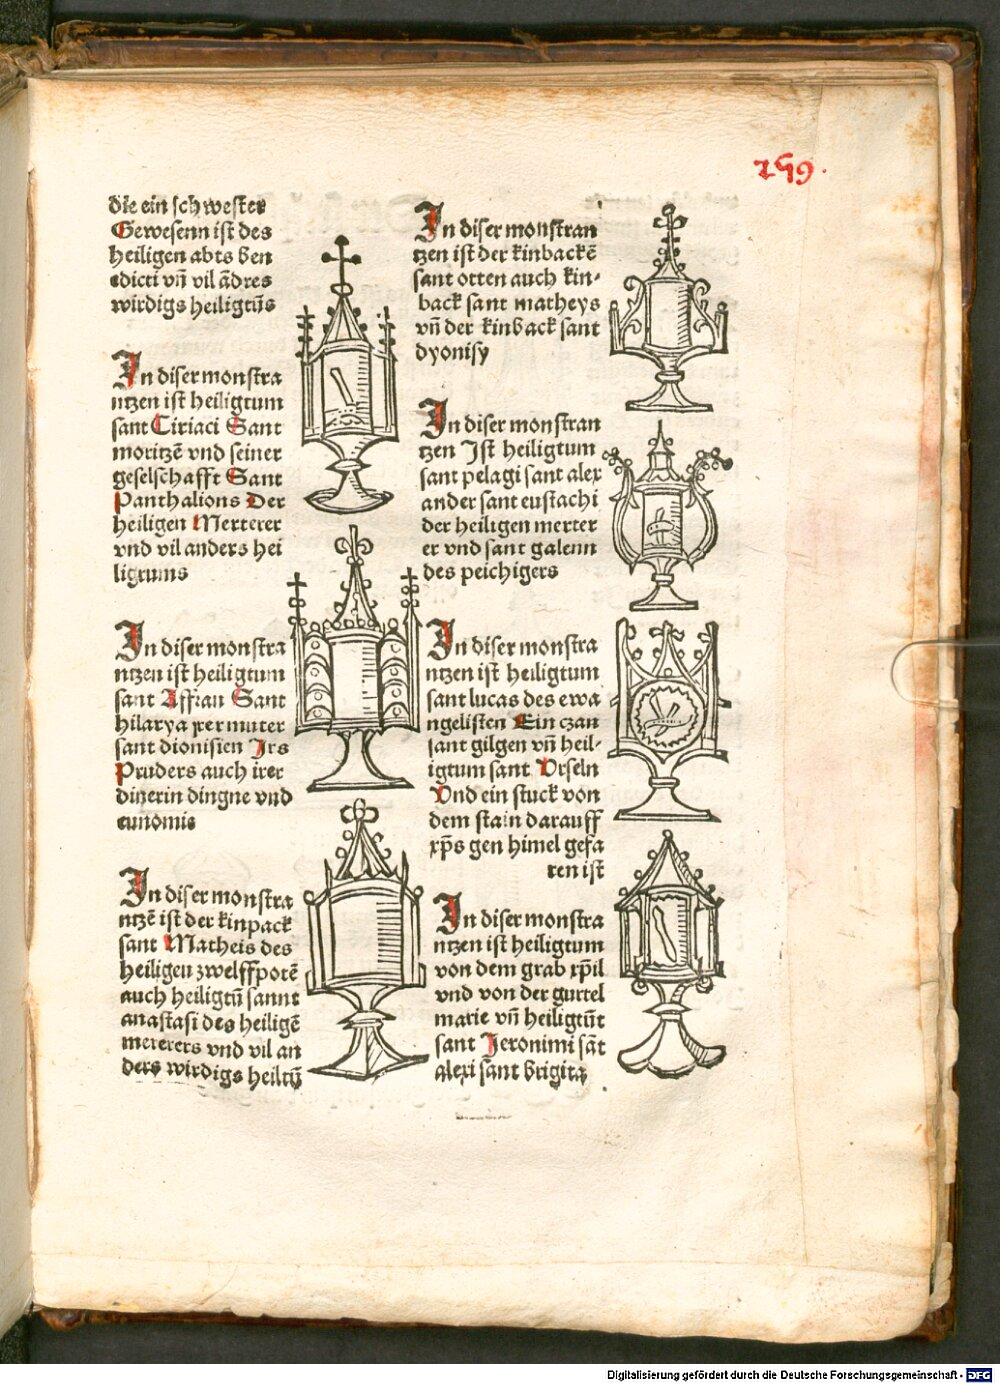 259.
die ein schwester
Gewesenn ist des
heiligen abts ben
edicti vñ vil ãdres
wirdigs heiligtũs
In diser monstra
ntzen ist heiligtum
sant Ciriaci Sant
moritzẽ vnd seiner
geselschafft Sant
Panthalions Der
heiligen Merterer
vnd vil anders hei
ligtums
In diser monstra
ntzen ist heiligtum
sant Affran Sant
hilarya yer muter
sant dionisien Irs
Pruders auch irer
dinerin dingne vnd
eunomie
In diser monstra
ntzẽ ist der kinpack
sant Matheis des
heiligen zwelffpotẽ
auch heiligtũ sannt
anastasi des heiligẽ
mererers vnd vil an
ders wirdigs heiltũ
In diser monstran
tzen ist der kinbackẽ
sant otten auch kin-
back sant matheys
vñ der kinback sant
dyonisy
In diser monstran
tzen Ist heiligtum
sant pelagi sant alex
ander sant eustachi
der heiligen merter
er vnd sant galenn
des peichigers
In diser monstra
ntzen ist heiligtum
sant lucas des ewa
ngelisten Ein czan
sant gilgen vñ heil-
igtum sant Vrseln
Vnd ein stuck von
dem stain darauff
xp̃s gen himel gefa
ren ist
In diser monstra
ntzen ist heiligtum
von dem grab xp̃i
vnd von der gurtel
marie vñ heiligtũt
sant Jeronimi sãt
alexi sant brigita
Digitalisierung gefördert durch die Deutsche Forschungsgemeinschaft - DFG